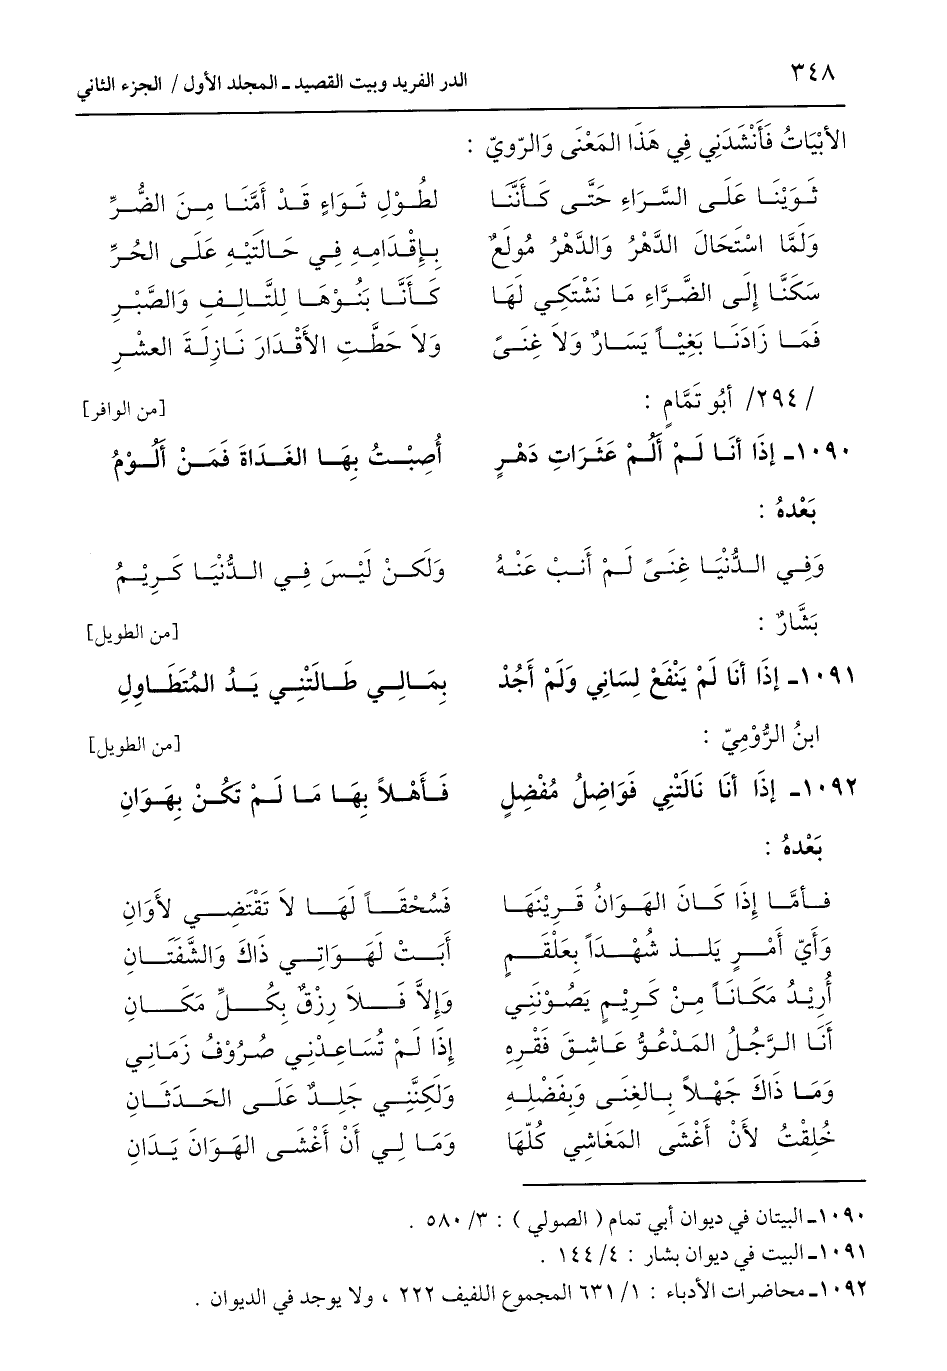 ٣٤٨ الدر الفريد وبيت القصيد ـ المجلد الأول / الجزء الثاني
الأبْيَاتُ فَأَنْشَدَنِي فِي هَذَا المَعْنَى وَالرّويّ :
ثَوَيْنَا عَلَى السَّرَاءِ حَتَّى كَأَنَّنَا لطُوْلِ ثَوَاءٍ قَدْ أَمَّنَا مِنَ الضُّرِّ
وَلَمَّا اسْتَحَالَ الدَّهْرُ وَالدَّهْرُ مُولَعٌ بِإقْدَامِهِ فِي حَالَتَيْهِ عَلَى الحُرِّ
سَكَنَّا إِلَى الضَّرَّاءِ مَا نَشْتَكِي لَهَا كَأَنَّا بَنُوْهَا لِلتَّالِفِ وَالصَّبْرِ
فَمَا زَادَنَا بَغْيَاً يَسَارٌ وَلاَ غِنَىً وَلاَ حَطَّتِ الأَقْدَارَ نَازِلَةَ العشْرِ
/ ٢٩٤/ أَبُو تَمَّامٍ : [من الوافر]
١٠٩٠ـ إِذَا أَنَا لَمْ أَلُمْ عَثَرَاتِ دَهْرٍ أُصِبْتُ بِهَا الغَدَاةَ فَمَنْ أَلُومُ
بَعْدهُ :
وَفِي الدُّنْيَا غِنَىً لَمْ أَنبْ عَنْهُ وَلَكنْ لَيْسَ فِي الدُّنْيَا كَرِيْمُ
بَشَّارٌ : [من الطويل]
١٠٩١ـ إِذَا أَنَا لَمْ يَنْفَعْ لِسَانِي وَلَمْ أَجُدْ بِمَالِي طَالَتْنِي يَدُ المُتَطَاوِلِ
ابنُ الرُّوْمِيّ : [من الطويل]
١٠٩٢ـ إِذَا أَنَا نَالَتْنِي فَوَاضِلُ مُفْضِلٍ فَأَهْلاً بِهَا مَا لَمْ تَكُنْ بِهَوَانِ
بَعْدهُ :
فَأمَّا إِذَا كَانَ الهَوَانُ قَرِيْنَهَا فَسُحْقَاً لَهَا لاَ تَقْتَضِي لأَوَانِ
وَأَيّ أَمْرٍ يَلذ شُهْدَاً بِعَلْقَمٍ أَبَتْ لَهَوَاتِي ذَاكَ وَالشَّفَتَانِ
أُرِيْدُ مَكَانَاً مِنْ كَرِيْمٍ يَصُوْنَنِي وَإِلاَّ فَلاَ رِزْقٌ بِكُلِّ مَكَانِ
أَنَا الرَّجُلُ المَدْعُوُّ عَاشِقَ فَقْرِهِ إِذَا لَمْ تُسَاعِدْنِي صُرُوْفُ زَمَانِي
وَمَا ذَاكَ جَهْلاً بِالغِنَى وَبِفَضْلِهِ وَلَكِنَّنِي جَلدٌ عَلَى الحَدَثَانِ
خُلِقْتُ لأَنْ أَغْشَى المَغَاشِي كُلّهَا وَمَا لِي أَنْ أَغْشَى الهَوَانَ يَدَانِ
١٠٩٠ـ البيتان في ديوان أبي تمام ( الصولي ) : ٣/ ٥٨٠ .
١٠٩١ـ البيت في ديوان بشار : ٤/ ١٤٤ .
١٠٩٢ـ محاضرات الأدباء : ١/ ٦٣١ المجموع اللفيف ٢٢٢ ، ولا يوجد في الديوان .